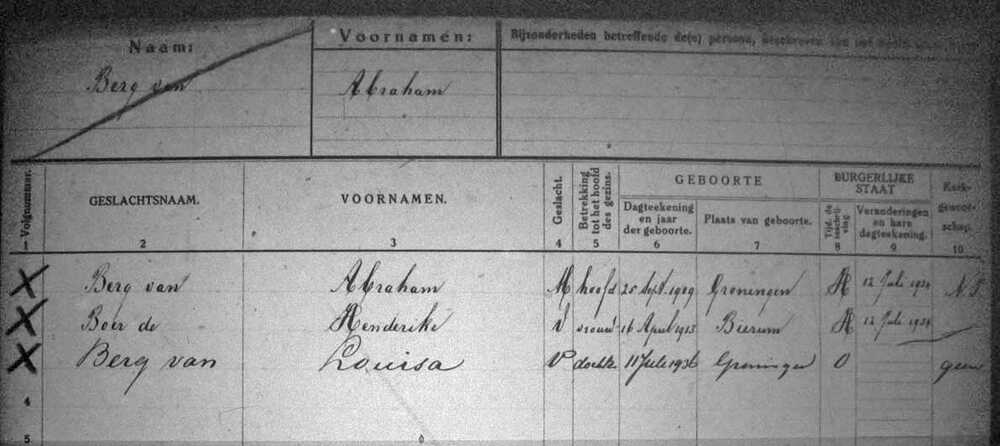 Naam: Voornamen: Bijzonderheden betreffende de(n) persoon, beschreven
Berg van Abraham
Volgnummer. GESLACHTSNAAM. VOORNAMEN. Geslacht. Betrekking tot het hoofd des gezins. GEBOORTE BURGERLIJKE STAAT Kerkgenootschap.
Dagteekening en jaar der geboorte. Plaats van geboorte. Tijd. de inschrijving. Veranderingen en hare dagteekening.
1 2 3 4 5 6 7 8 9 10
Berg van Abraham M hoofd 25 Sept. 1909 Groningen H 12 Juli 1934 N.I.
Boer de Henderike V vrouw 16 April 1913 Bierum H 12 Juli 1934
Berg van Louisa V dochter 11 Juli 1936 Groningen O geen
4
5